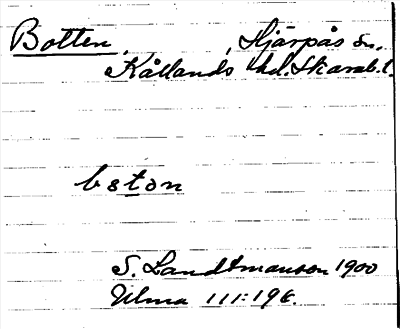 Botten, Hjärpås sn,
Kållands hd. Skarab. l.
bston
S. Landtmanson 1900
Ulma 111:196.